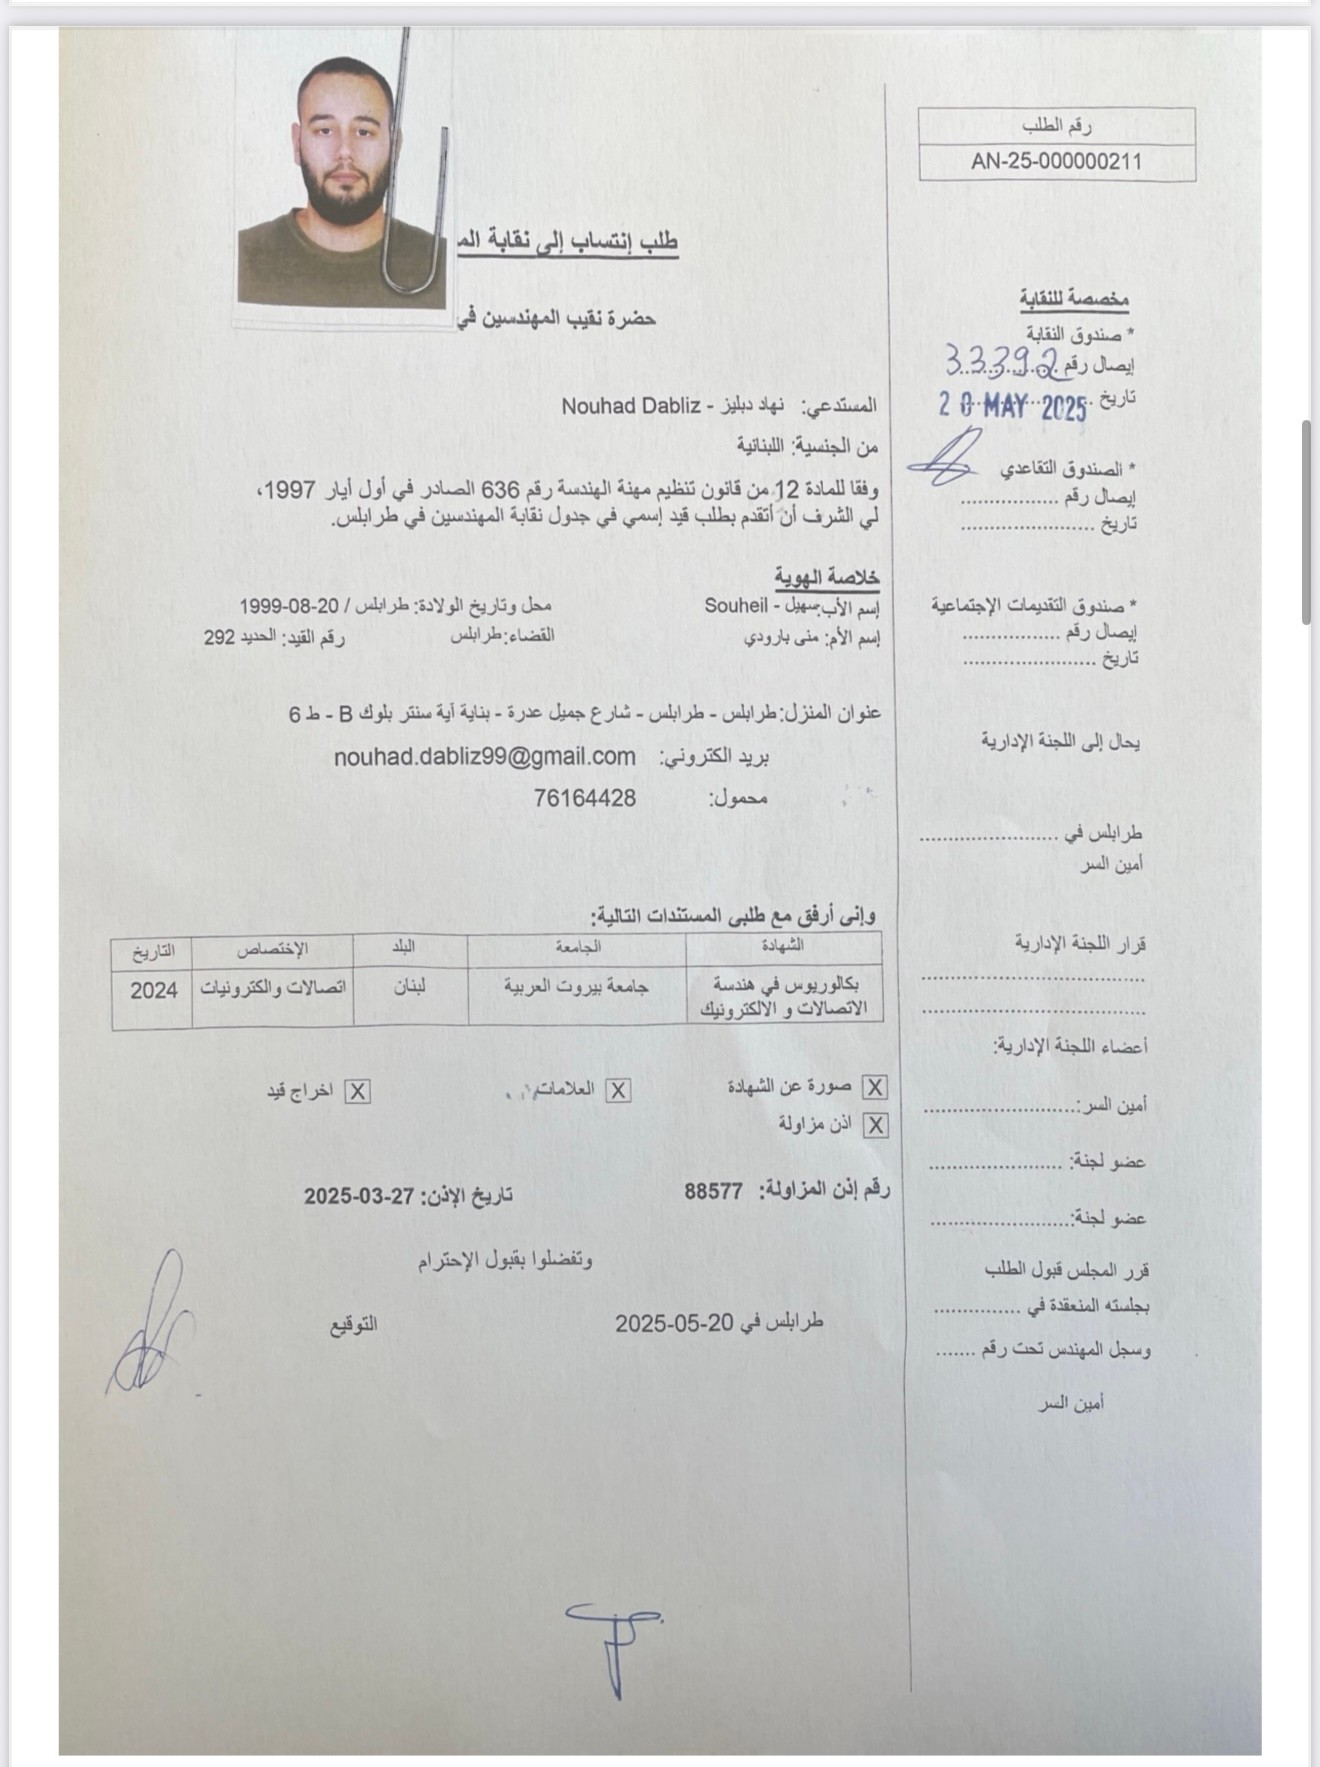 رقم الطلب
AN-25-000000211
طلب إنتساب إلى نقابة
حضرة نقيب المهندسين في
المستدعي: نهاد دبليز - Nouhad Dabliz
من الجنسية: اللبنانية
وفقا للمادة 12 من قانون تنظيم مهنة الهندسة رقم 636 الصادر في أول أيار 1997،
لي الشرف أن أتقدم بطلب قيد إسمي في جدول نقابة المهندسين في طرابلس.
خلاصة الهوية
إسم الأب: سهيل - Souheil محل وتاريخ الولادة: طرابلس / 20-08-1999
إسم الأم: منى بارودي القضاء: طرابلس رقم القيد: الحديد 292
عنوان المنزل: طرابلس - طرابلس - شارع جميل عدرة - بناية آية سنتر بلوك B - ط 6
بريد الكتروني: nouhad.dabliz99@gmail.com
محمول: 76164428
وإنى أرفق مع طلبى المستندات التالية:
الشهادة الجامعة البلد الإختصاص التاريخ
بكالوريوس في هندسة الاتصالات و الالكترونيك جامعة بيروت العربية لبنان اتصالات والكترونيات 2024
X صورة عن الشهادة X العلامات X اخراج قيد
X اذن مزاولة
رقم إذن المزاولة: 88577 تاريخ الإذن: 27-03-2025
وتفضلوا بقبول الإحترام
طرابلس في 20-05-2025 التوقيع
مخصصة للنقابة
* صندوق النقابة
إيصال رقم 33392
تاريخ 20 MAY 2025
* الصندوق التقاعدي
إيصال رقم .................
تاريخ .......................
* صندوق التقديمات الإجتماعية
إيصال رقم .................
تاريخ .......................
يحال إلى اللجنة الإدارية
طرابلس في ........................
أمين السر
قرار اللجنة الإدارية
.......................................
.......................................
أعضاء اللجنة الإدارية:
أمين السر:..........................
عضو لجنة: .......................
عضو لجنة:........................
قرر المجلس قبول الطلب
بجلسته المنعقدة في ...............
وسجل المهندس تحت رقم .......
أمين السر